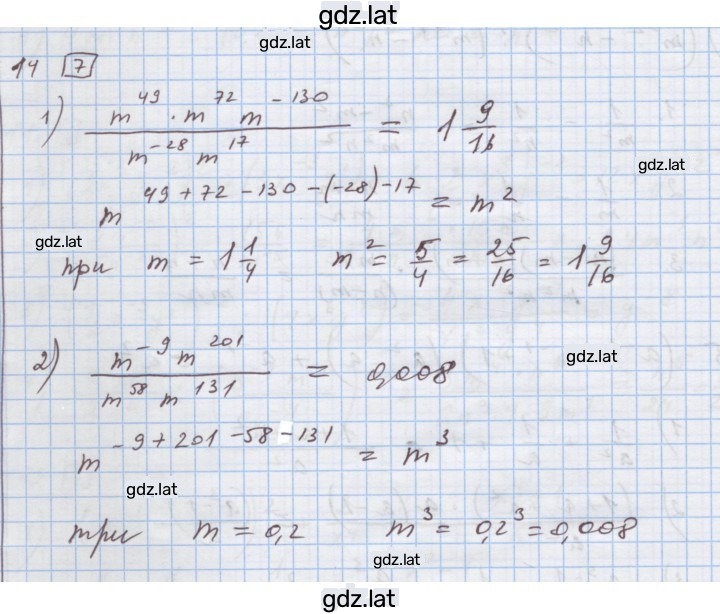 gdz.lat
14 [7] gdz.lat
1) (m^49 · m^72 m^-130) / (m^-28 m^17) = 1 9/16
gdz.lat
m^(49 + 72 - 130 - (-28) - 17) = m^2
gdz.lat
при m = 1 1/4 m^2 = 5/4 = 25/16 = 1 9/16
2) (m^-9 m^201) / (m^58 m^131) = 0,008
gdz.lat
m^(-9 + 201 - 58 - 131) = m^3
gdz.lat
при m = 0,2 m^3 = 0,2^3 = 0,008
gdz.lat
gdz.lat